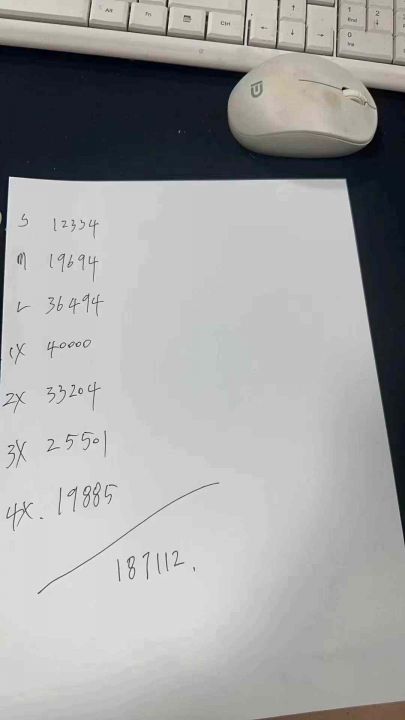 Alt Fn Ctrl ← ↑ ↓ → 1 End 2 ↓ 0 Ins
S 12334
M 19694
L 36494
1X 40000
2X 33204
3X 25501
4X. 19885
187112.